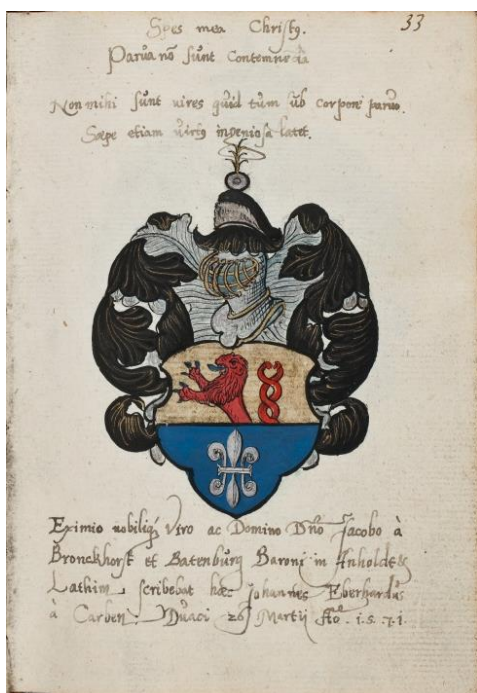 33
Spes mea Christ9.
Parua nõ sunt contemnẽda
Non mihi sunt uires quid tum sub corpore paruo
Sæpe etiam uirtus ingeniosa latet.
Eximio nobiliq3 Viro ac Domino Dño Jacobo à
Bronckhorst et Batenburg Baroni in Anholdt &
Lathim scribebat hæc Johannes Eberhardus
à Carben. Duaci 26 Martii Aº. 1.5.71.